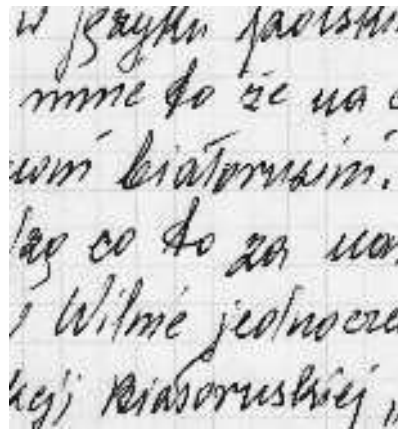 w języku polski
mnie to że na
białorusini.
co to za
Wilnie jednocze
białoruskiej „